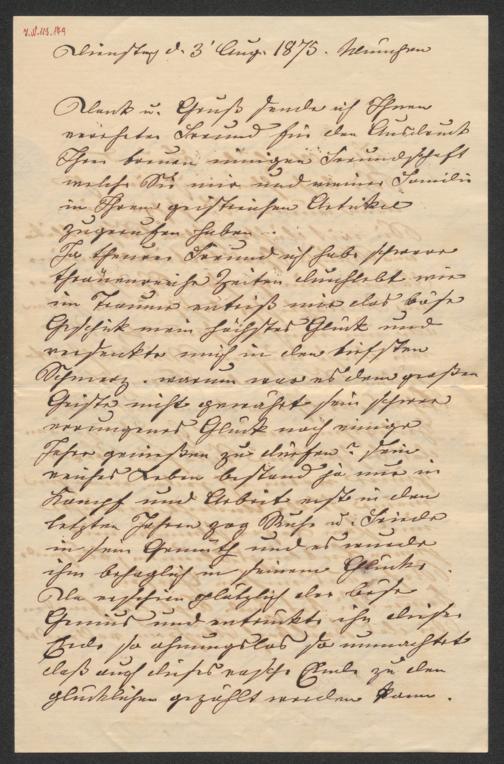 Dienstag d. 3' Aug. 1875. München
Dank u. Gruß sende ich Ihnen
verehrter Freund für den Ausdruck
Ihrer treuen innigen Freundschaft
welche Sie mir und meiner Familie
in Ihrem geistreichen Artikel
zugerufen haben.
Ja theurer Freund ich habe schwere
thränenreiche Zeiten durchlebt wie
im Traume entriß mir das böse
Geschick mein höchstes Glück und
versenkte mich in den tiefsten
Schmerz. warum war es dem großen
Geiste nicht gewährt sein schwer
errungenes Glück noch einige
Jahre genießen zu dürfen? sein
reiches Leben bestand ja nur in
Kampf und Arbeit erst in den
letzten Jahren zog Ruhe u. Friede
in sein Gemüth und es wurde
ihm behaglich in seinem Glücke.
Da erschien plötzlich der böse
Genius und entrückte ihn dieser
Erde so ahnungslos so umnachtet
daß auch dieses rasche Ende zu den
glücklichen gezählt werden kann.